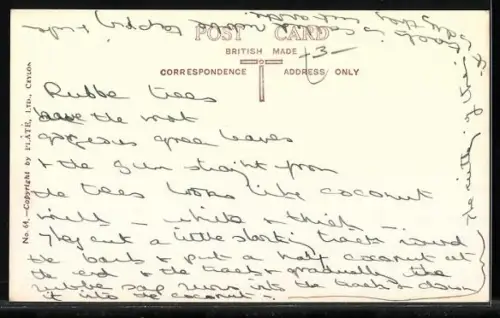 POST CARD
BRITISH MADE
CORRESPONDENCE
ADDRESS ONLY
No. 64.—Copyright by PLATÉ, LTD., CEYLON
-3-
Rubber trees
have the most
gorgeous green leaves
& the gum straight from
the trees looks like coconut
milk — white & thick —
They cut a little slanting track round
the bark & put a half coconut at
the end & the track & gradually the
rubber sap runs into the track & down
it into the coconut —
The cutting of the